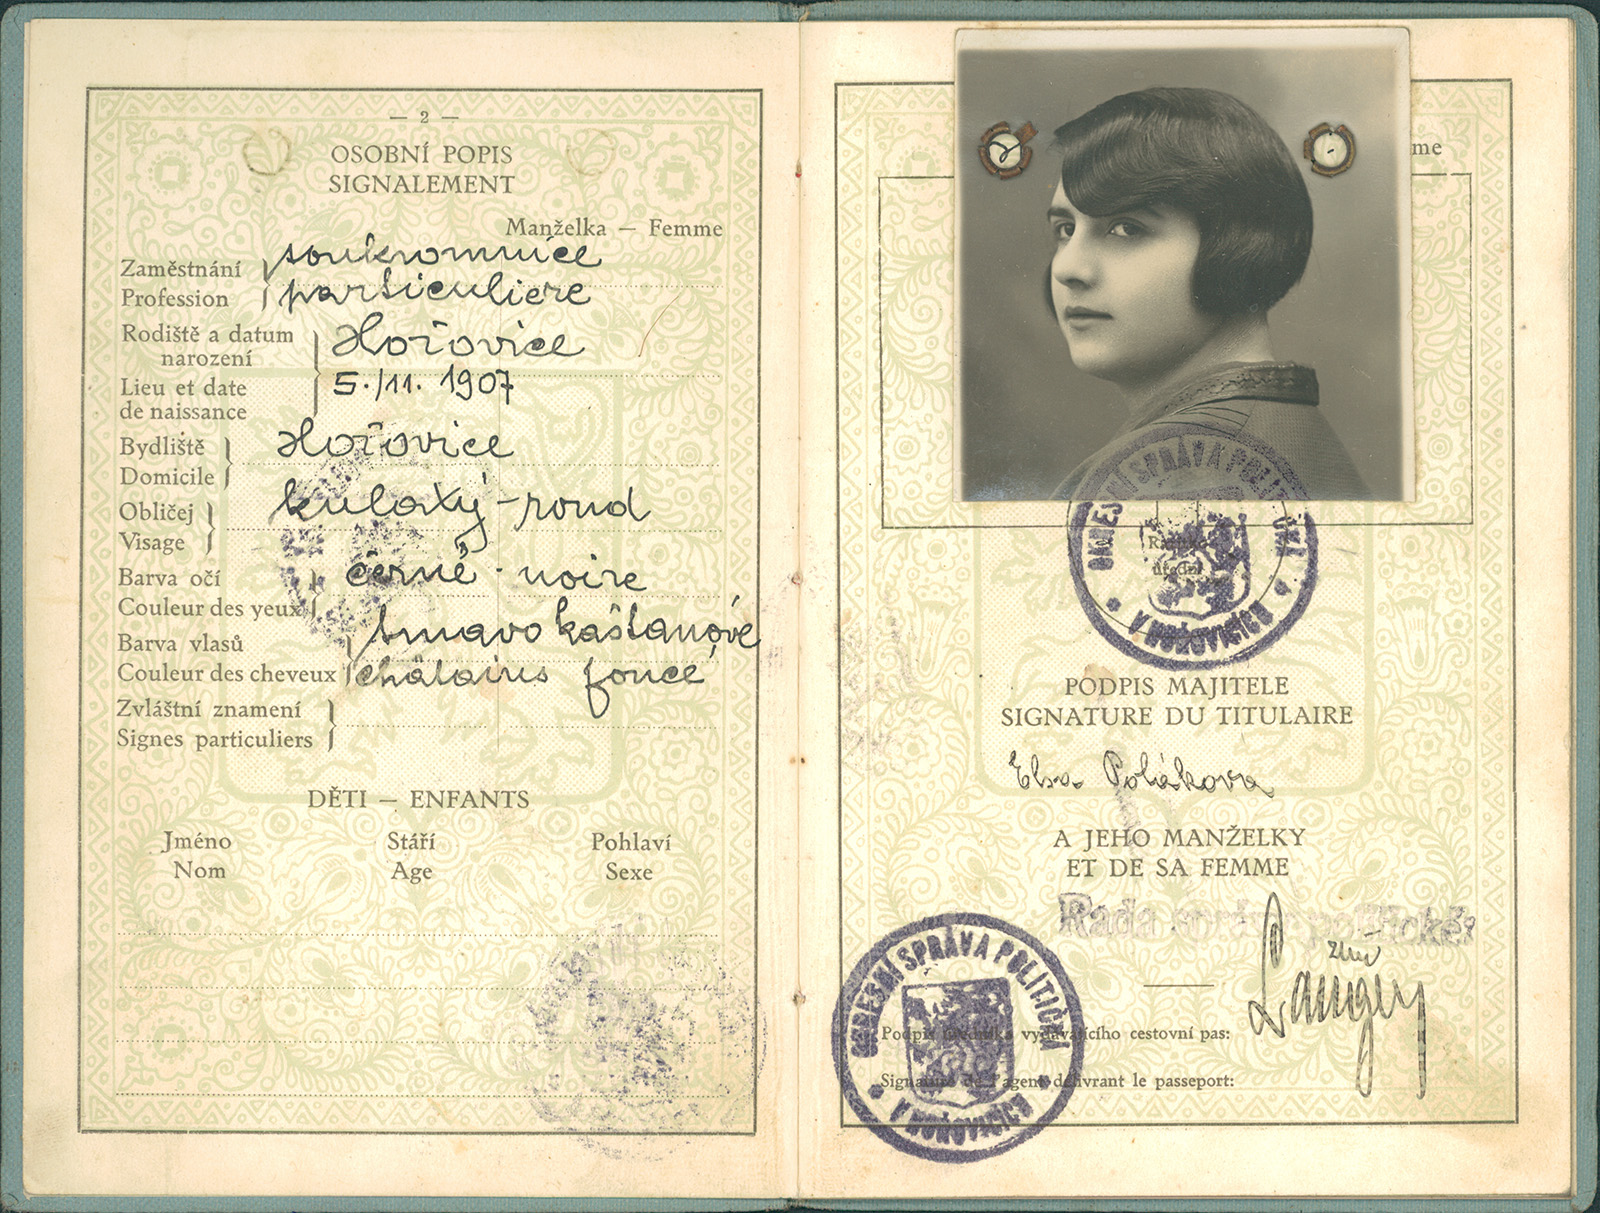 — 2 —
OSOBNÍ POPIS
SIGNALEMENT
Manželka — Femme
Zaměstnání
soukromnice
Profession
particuliere
Rodiště a datum
narození
Hořovice
Lieu et date
de naissance
5./11. 1907
Bydliště
Hořovice
Domicile
Obličej
kulatý - rond
Visage
Barva očí
černé - noire
Couleur des yeux
Barva vlasů
tmavo kaštanové
Couleur des cheveux
châtains foncé
Zvláštní znamení
Signes particuliers
DĚTI — ENFANTS
Jméno Stáří Pohlaví
Nom Age Sexe
me
OKRESNÍ SPRÁVA POLITICKÁ
V HOŘOVICÍCH
PODPIS MAJITELE
SIGNATURE DU TITULAIRE
Elsa Poláková
A JEHO MANŽELKY
ET DE SA FEMME
Rada správy politické:
OKRESNÍ SPRÁVA POLITICKÁ
V HOŘOVICÍCH
Podpis úředníka vydávajícího cestovní pas:
Signature de l'agent délivrant le passeport: